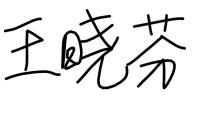 王晓芬